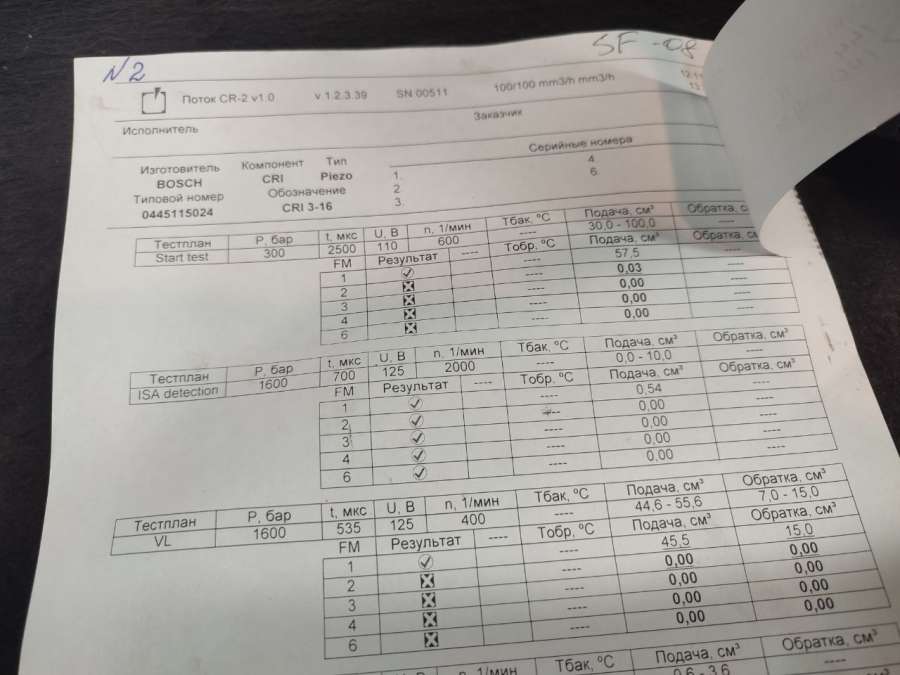 N2
SF -08
Поток CR-2 v1.0 v 1.2.3.39 SN 00511 100/100 mm3/h mm3/h
Исполнитель Заказчик
Серийные номера
Изготовитель Компонент Тип
BOSCH CRI Piezo 1. 4
Типовой номер Обозначение 2 6.
0445115024 CRI 3-16 3.
Тестплан P, бар t, мкс U, В n, 1/мин Tбак, ºC Подача, см³ Обратка,
Start test 300 2500 110 600 ---- 30,0 - 100,0
FM Результат ---- Tобр, ºC Подача, см³ Обратка,
1 ---- 57,5 ----
2 ---- 0,03 ----
3 ---- 0,00 ----
4 ---- 0,00 ----
6 ---- 0,00 ----
Тестплан P, бар t, мкс U, В n, 1/мин Tбак, ºC Подача, см³ Обратка, см³
ISA detection 1600 700 125 2000 ---- 0,0 - 10,0 ----
FM Результат ---- Tобр, ºC Подача, см³ Обратка, см³
1 ---- 0,54 ----
2 ---- 0,00 ----
3 ---- 0,00 ----
4 ---- 0,00 ----
6 ----
Тестплан P, бар t, мкс U, В n, 1/мин Tбак, ºC Подача, см³ Обратка, см³
VL 1600 535 125 400 ---- 44,6 - 55,6 7,0 - 15,0
FM Результат ---- Tобр, ºC Подача, см³ Обратка, см³
1 ---- 45,5 15,0
2 ---- 0,00 0,00
3 ---- 0,00 0,00
4 ---- 0,00 0,00
6 ---- 0,00 0,00
n, 1/мин Tбак, ºC Подача, см³ Обратка, см³
0,6 - 3,6 ----